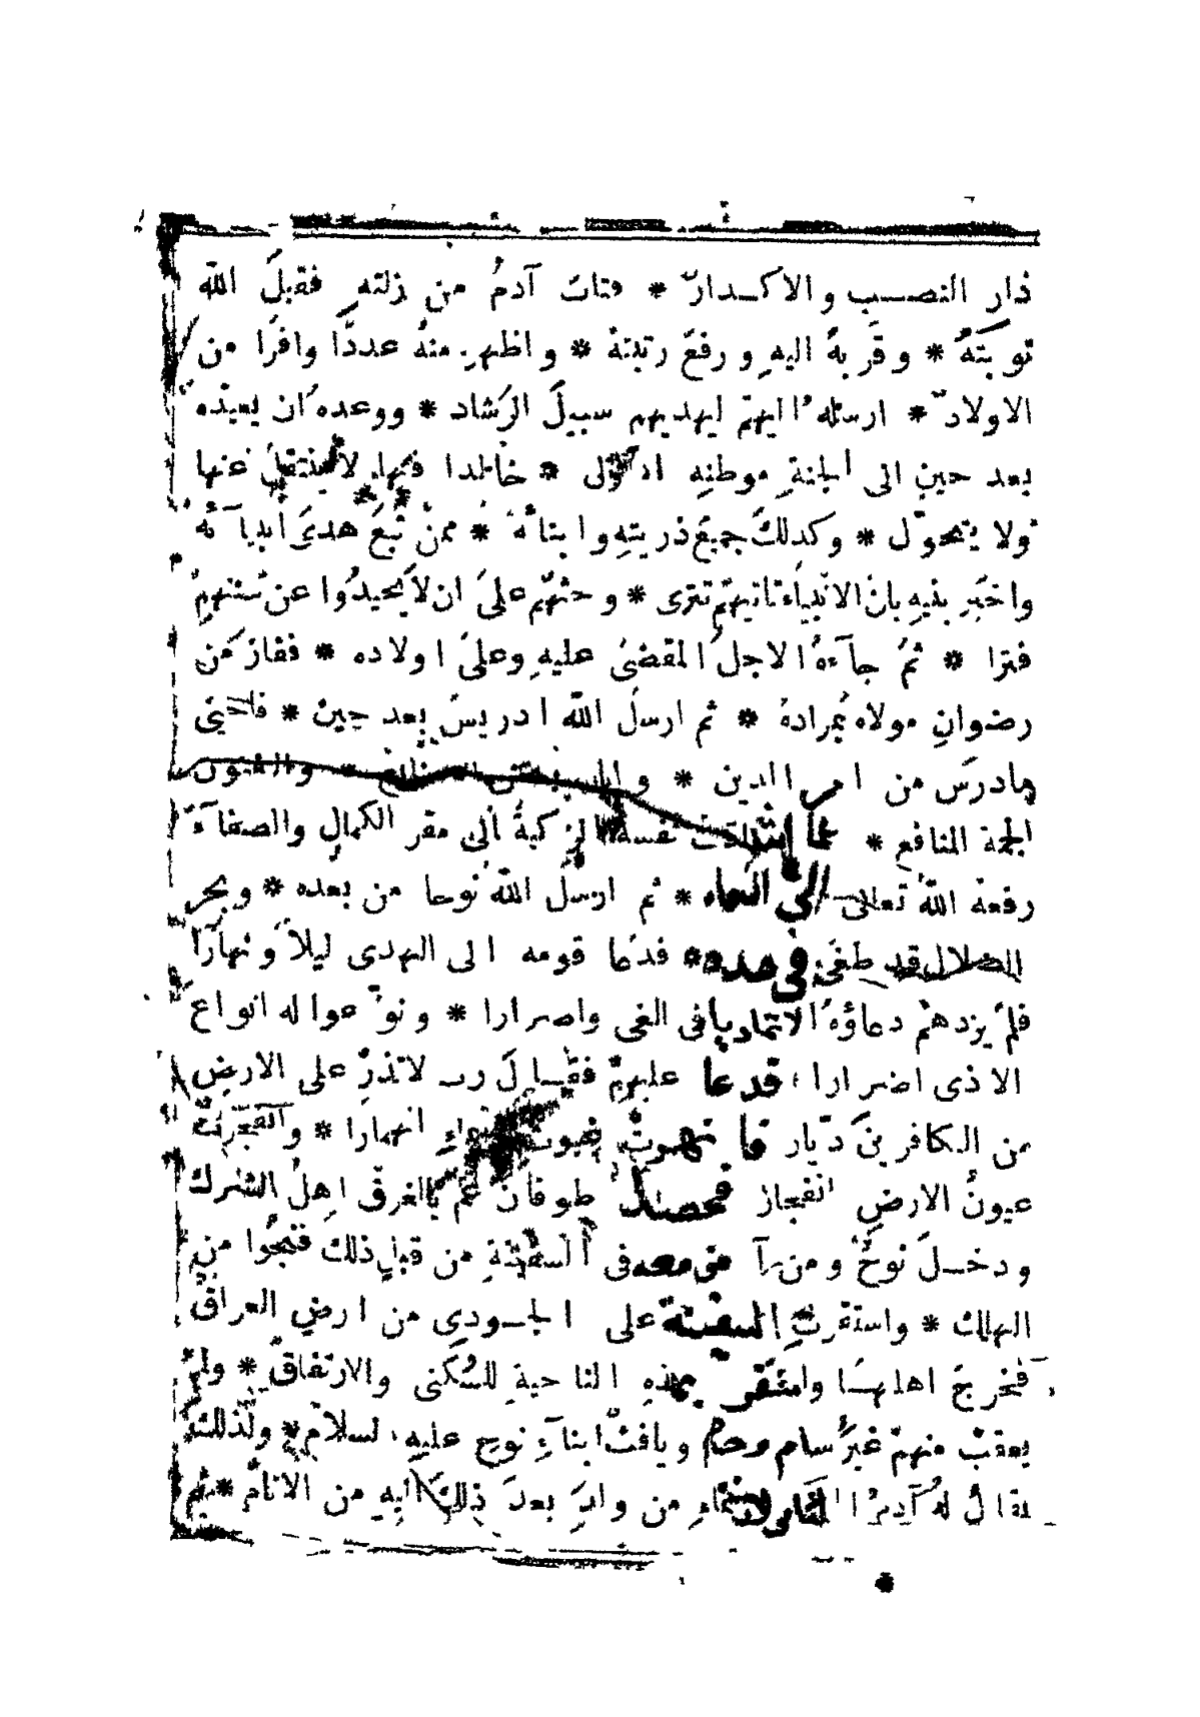 دار النصب والاكدار * فتاب آدم من زلته فقبل الله
توبته * وقربه اليه ورفع رتبته * واظهر منه عددا وافرا من
الاولاد * ارسله اليهم ليهديهم سبيل الرشاد * ووعده ان يعيده
بعد حين الى الجنة موطنه الاول * خالدا فيها لا ينتقل عنها
ولا يتحول * وكذلك جميع ذريته وابنائه * ممن تبع هدى انبيائه
واخبر بنيه بان الانبياء تاتيهم تترى * وحثهم على ان لا يحيدوا عن سننهم
فترا * ثم جآءه الاجل المقضى عليه وعلى اولاده * ففاز من
رضوان مولاه بمراده * ثم ارسل الله ادريس بعد حين * فاحيى
مادرس من امر الدين * والفنون
الجمة المنافع * نفسه الزكية الى مقر الكمال والصفآء
رفعه الله تعالى الى السماء * ثم ارسل الله نوحا من بعده * وبحر
الضلال قد طغى فى مده * فدعا قومه الى الهدى ليلا ونهارا
فلم يزدهم دعاؤه الا تماديا فى الغى واصرارا * ونوعوا له انواع
الاذى اضرارا * فدعا عليهم فقال رب لا تذر على الارض
من الكافرين ديارا انهمارا * وانفجرت
عيون الارض انفجارا فحصل طوفان عم بالغرق اهل الشرك
ودخل نوح ومن آمن معه فى السفينة من قبل ذلك فنجوا من
الهلاك * واستقرت السفينة على الجودى من ارض العراق
فخرج اهلها واستقر بهذه الناحية للسكنى والارتفاق * ولم
يعقب منهم غير سام وحام ويافث ابنآء نوح عليه السلام * ولذلك
يقال له آدم الثانى من واب بعد ذلك ابيه من الانام * ثم